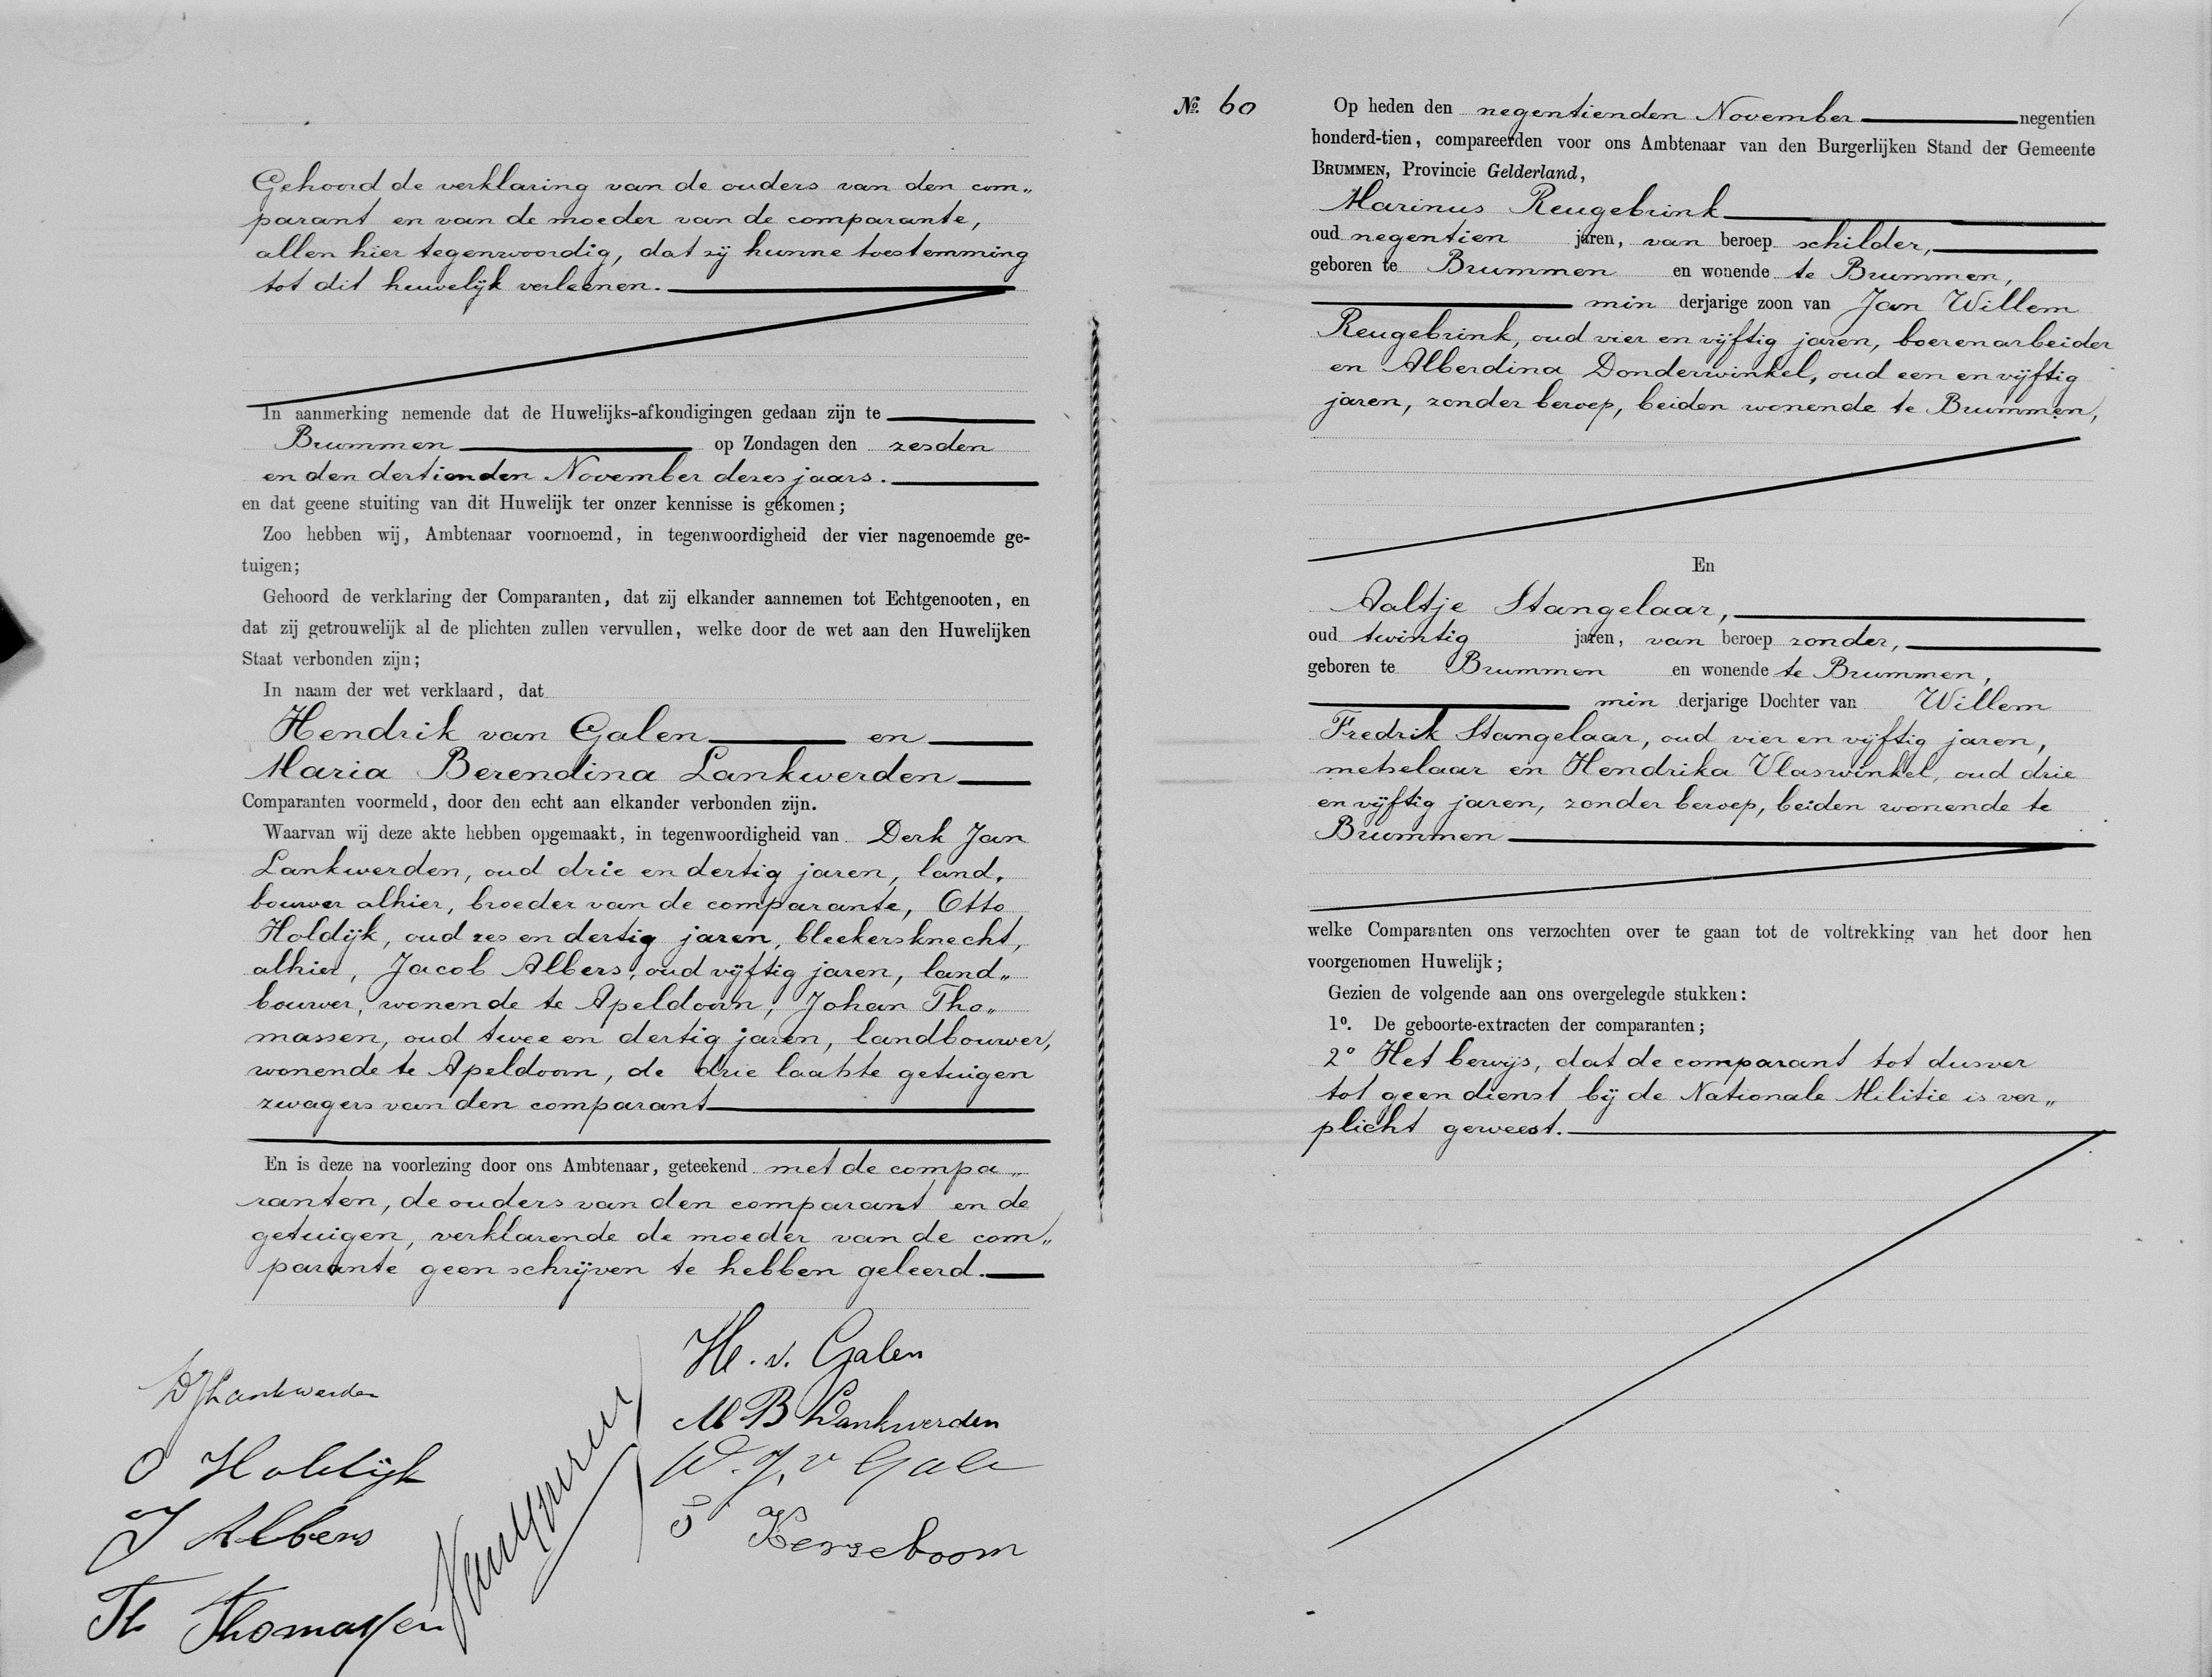 Gehoord de verklaring van de ouders van den com„
parant en van de moeder van de comparante,
allen hier tegenwoordig, dat zij hunne toestemming
tot dit huwelijk verleenen.
In aanmerking nemende dat de Huwelijks-afkondigingen gedaan zijn te
Brummen op Zondagen den zesden
en den dertienden November dezes jaars.
en dat geene stuiting van dit Huwelijk ter onzer kennisse is gekomen;
Zoo hebben wij, Ambtenaar voornoemd, in tegenwoordigheid der vier nagenoemde ge-
tuigen;
Gehoord de verklaring der Comparanten, dat zij elkander aannemen tot Echtgenooten, en
dat zij getrouwelijk al de plichten zullen vervullen, welke door de wet aan den Huwelijken
Staat verbonden zijn;
In naam der wet verklaard, dat
Hendrik van Galen en
Maria Berendina Lankwerden
Comparanten voormeld, door den echt aan elkander verbonden zijn.
Waarvan wij deze akte hebben opgemaakt, in tegenwoordigheid van Derk Jan
Lankwerden, oud drie en dertig jaren, land„
bouwer alhier, broeder van de comparante, Otto
Holdijk, oud zes en dertig jaren, bleekersknecht,
alhier, Jacob Albers, oud vijftig jaren, land„
bouwer, wonende te Apeldoorn, Johan Tho„
massen, oud twee en dertig jaren, landbouwer,
wonende te Apeldoorn, de drie laatste getuigen
zwagers van den comparant
En is deze na voorlezing door ons Ambtenaar, geteekend met de compa„
ranten, de ouders van den comparant en de
getuigen, verklarende de moeder van de com„
parante geen schrijven te hebben geleerd.
H. v. Galen
DJ Lankwerden
M B Lankwerden
O Holdijk
W. J. v Gale
J Albers
Kerseboom
Th Thomassen
No. 60
Op heden den negentienden November negentien
honderd-tien, compareerden voor ons Ambtenaar van den Burgerlijken Stand der Gemeente
BRUMMEN, Provincie Gelderland,
Marinus Reugebrink
oud negentien jaren, van beroep schilder,
geboren te Brummen en wonende te Brummen,
min derjarige zoon van Jan Willem
Reugebrink, oud vier en vijftig jaren, boerenarbeider
en Alberdina Donderwinkel, oud een en vijftig
jaren, zonder beroep, beiden wonende te Brummen,
En
Aaltje Stangelaar,
oud twintig jaren, van beroep zonder,
geboren te Brummen en wonende te Brummen,
min derjarige Dochter van Willem
Fredrik Stangelaar, oud vier en vijftig jaren,
metselaar en Hendrika Vlaswinkel, oud drie
en vijftig jaren, zonder beroep, beiden wonende te
Brummen
welke Comparanten ons verzochten over te gaan tot de voltrekking van het door hen
voorgenomen Huwelijk;
Gezien de volgende aan ons overgelegde stukken:
1o. De geboorte-extracten der comparanten;
2o Het bewijs, dat de comparant tot dusver
tot geen dienst bij de Nationale Militie is ver„
plicht geweest.